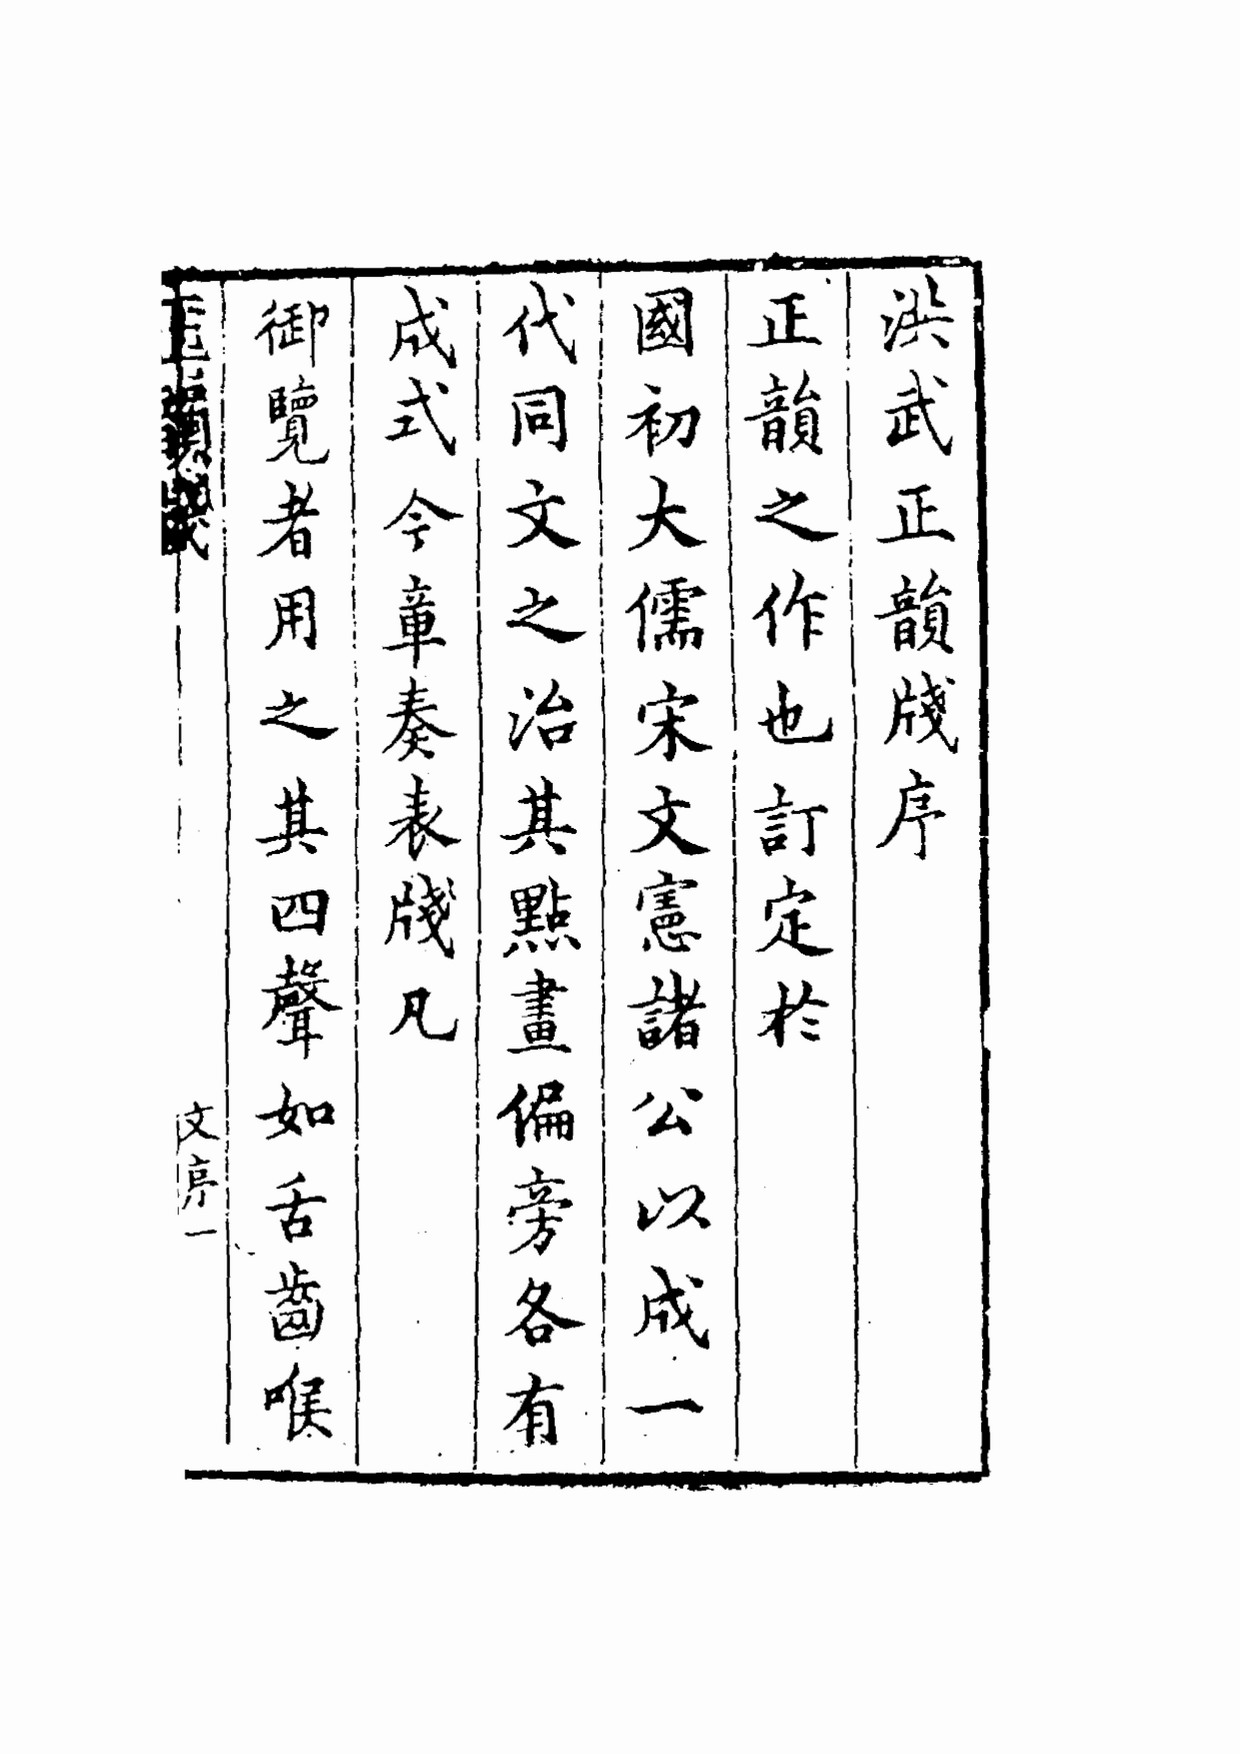 洪武正韻牋序
正韻之作也訂定於
國初大儒宋文憲諸公以成一
代同文之治其點畫偏旁各有
成式今章奏表牋凡
御覽者用之其四聲如舌齒喉
正韻牋
文序一